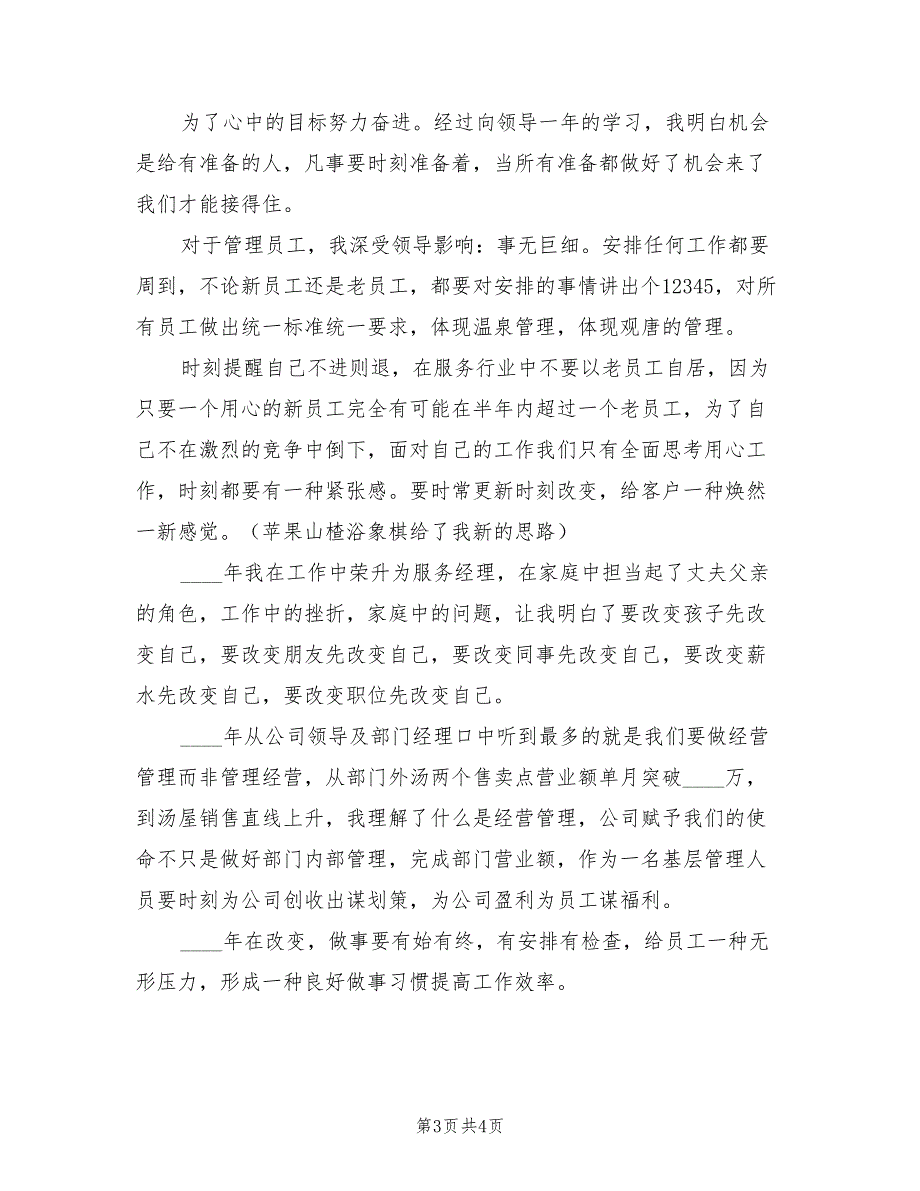 为了心中的目标努力奋进。经过向领导一年的学习，我明白机会
是给有准备的人，凡事要时刻准备着，当所有准备都做好了机会来了
我们才能接得住。
对于管理员工，我深受领导影响：事无巨细。安排任何工作都要
周到，不论新员工还是老员工，都要对安排的事情讲出个12345，对所
有员工做出统一标准统一要求，体现温泉管理，体现观唐的管理。
时刻提醒自己不进则退，在服务行业中不要以老员工自居，因为
只要一个用心的新员工完全有可能在半年内超过一个老员工，为了自
己不在激烈的竞争中倒下，面对自己的工作我们只有全面思考用心工
作，时刻都要有一种紧张感。要时常更新时刻改变，给客户一种焕然
一新感觉。（苹果山楂浴象棋给了我新的思路）
____年我在工作中荣升为服务经理，在家庭中担当起了丈夫父亲
的角色，工作中的挫折，家庭中的问题，让我明白了要改变孩子先改
变自己，要改变朋友先改变自己，要改变同事先改变自己，要改变薪
水先改变自己，要改变职位先改变自己。
____年从公司领导及部门经理口中听到最多的就是我们要做经营
管理而非管理经营，从部门外汤两个售卖点营业额单月突破____万，
到汤屋销售直线上升，我理解了什么是经营管理，公司赋予我们的使
命不只是做好部门内部管理，完成部门营业额，作为一名基层管理人
员要时刻为公司创收出谋划策，为公司盈利为员工谋福利。
____年在改变，做事要有始有终，有安排有检查，给员工一种无
形压力，形成一种良好做事习惯提高工作效率。
第3页共4页